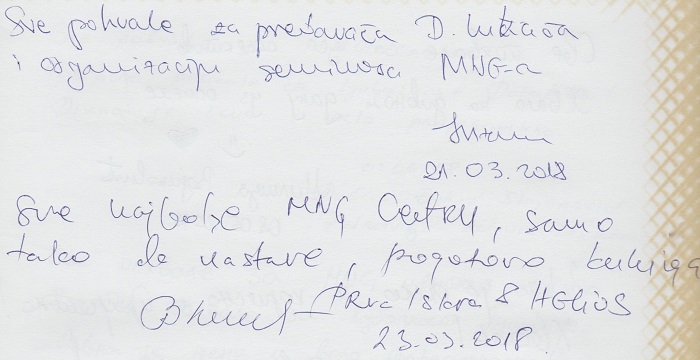 Sve pohvale za predavača D. Lukača
i organizaciju seminara MNG-a
21.03.2018
Sve najbolje MNG Centru, samo
tako da nastave, pogotovo
PRva Iskra & HELIOS
23.03.2018.